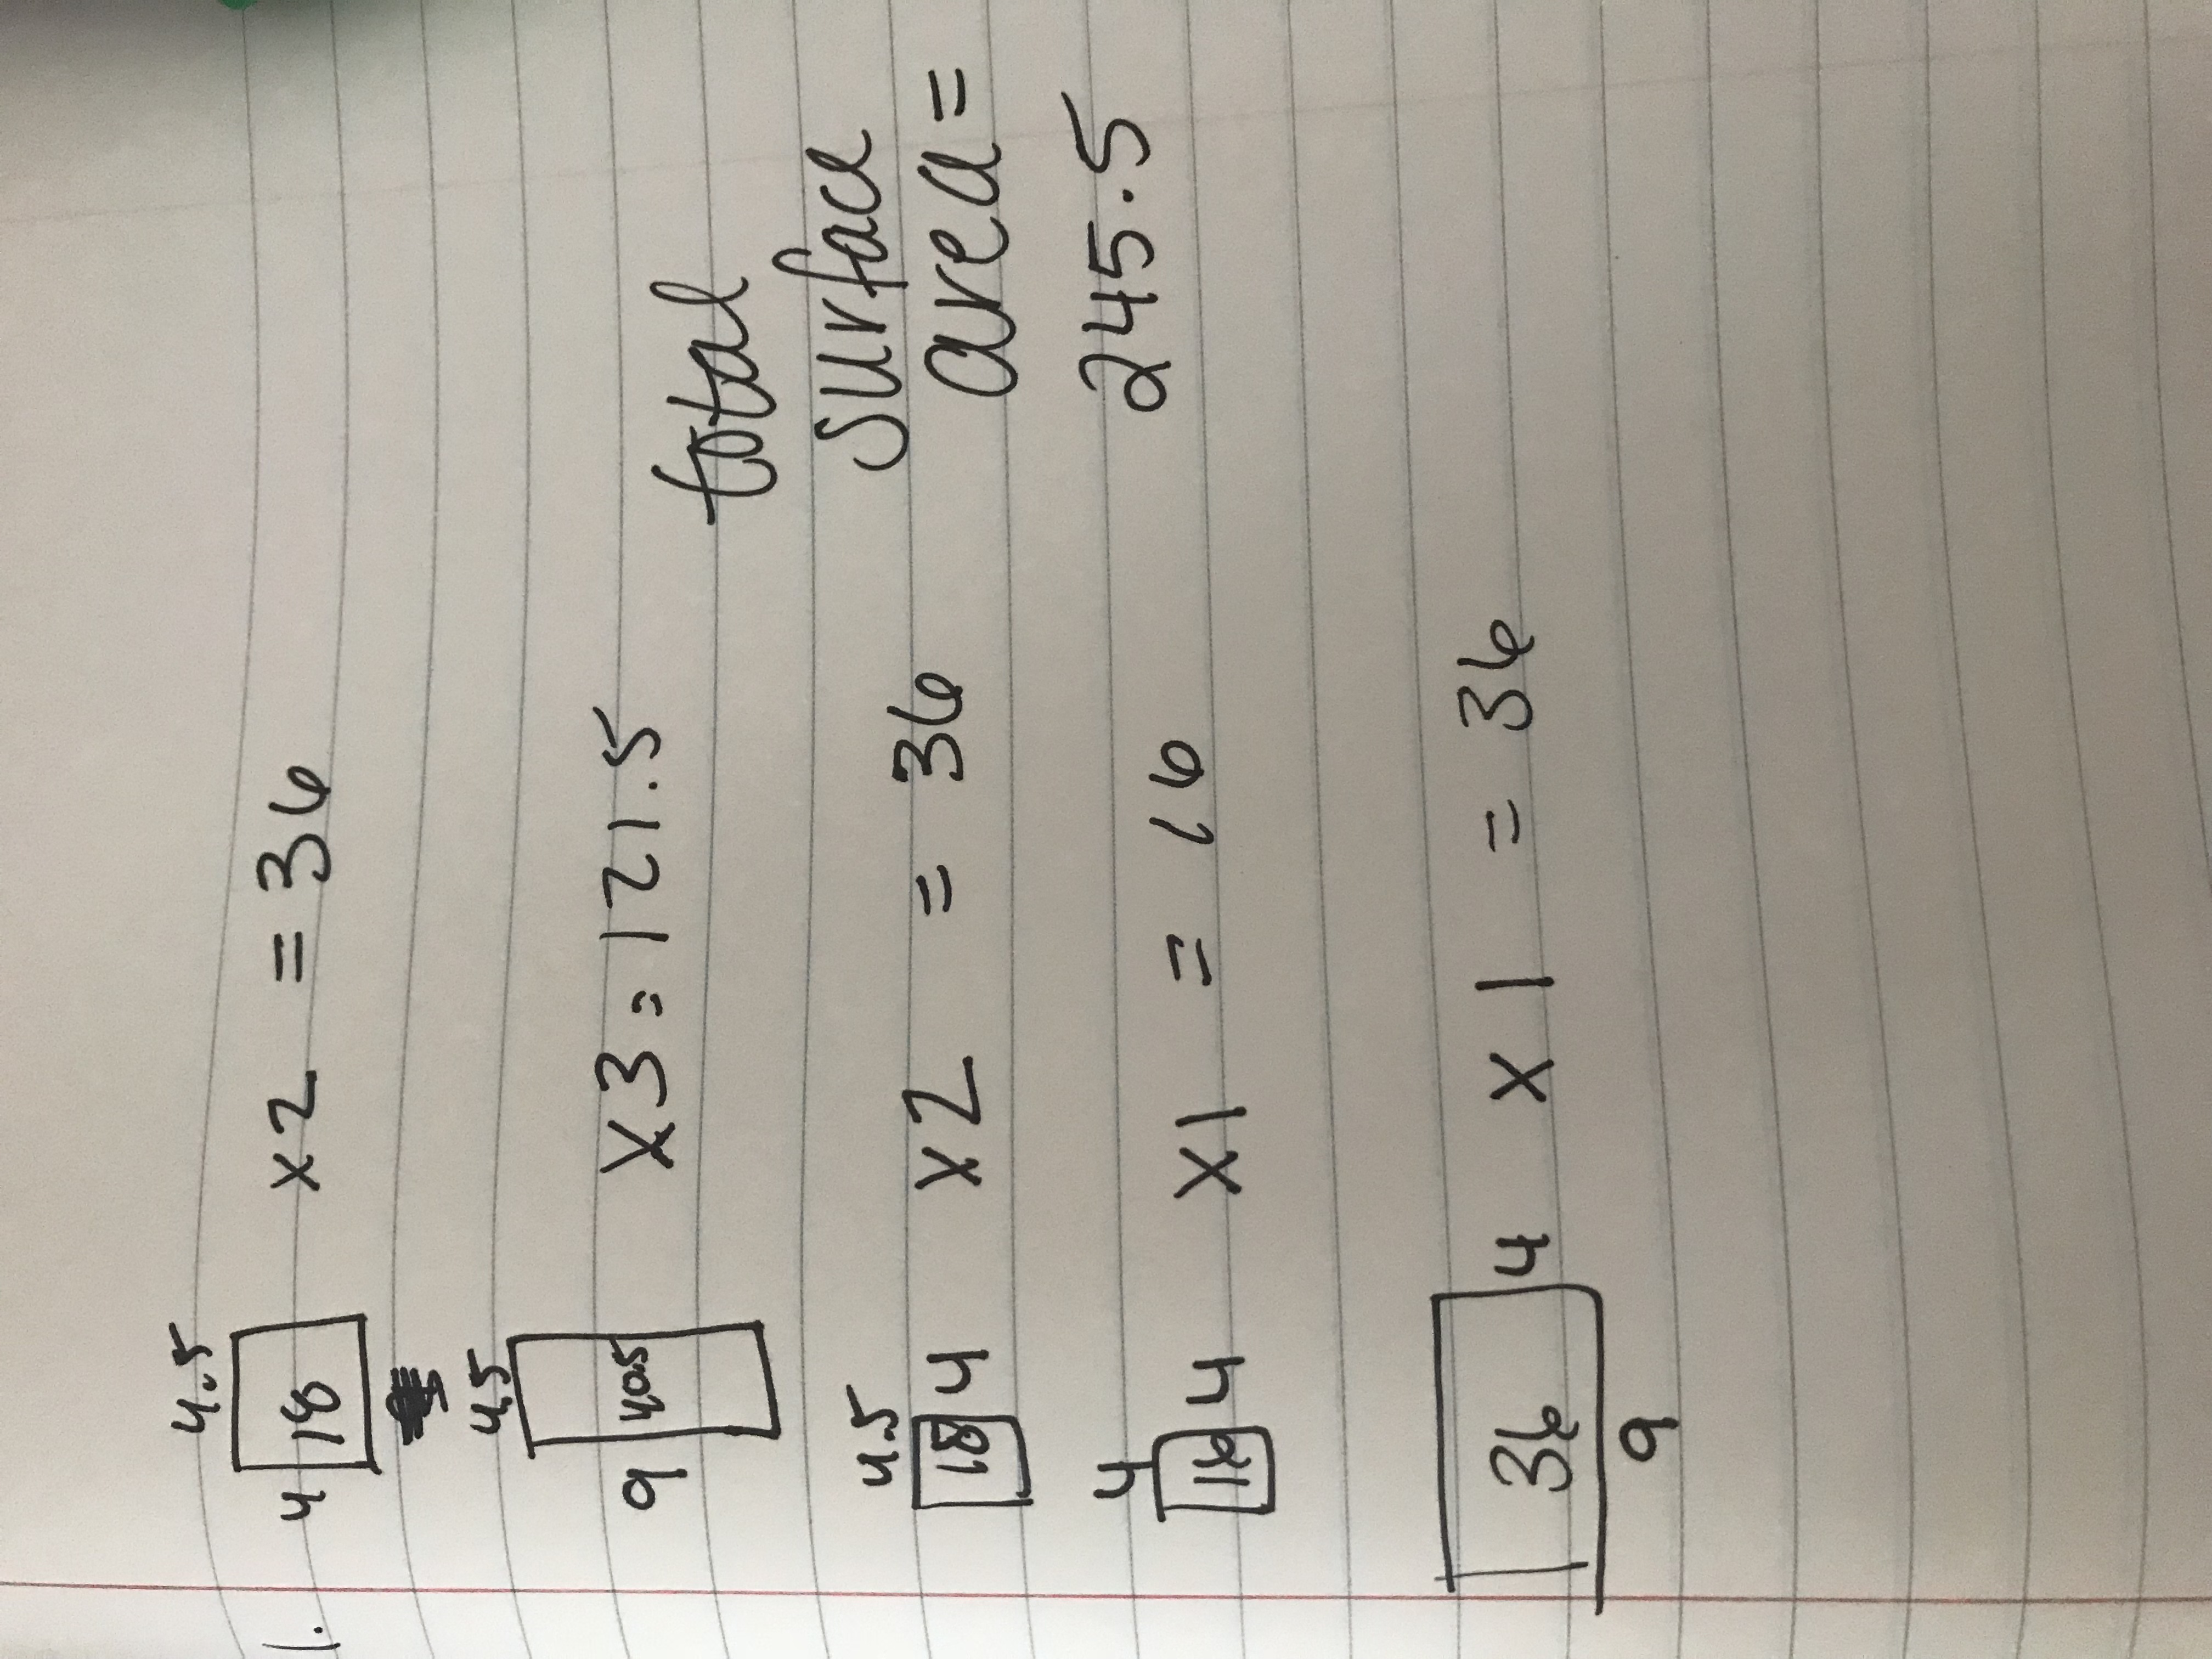 1.
4.5
4 18 x2 = 36
4.5
9 40.5 x3 = 121.5
total
surface
area =
245.5
4.5
18 4 x2 = 36
4
16 4 x1 = 16
36 4 x 1 = 36
9